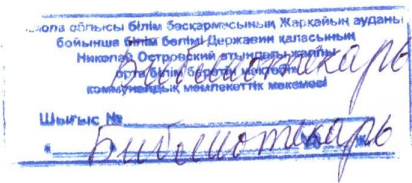 облысы білім басқармасының Жарқайың ауданы
бойынша білім бөлімі Державин қаласының
Николай Островский атындағы жалпы
орта білім беретін мектебі
коммуналдық мемлекеттік мекемесі
Библиотекарь
Шығыс №
Библиотекарь